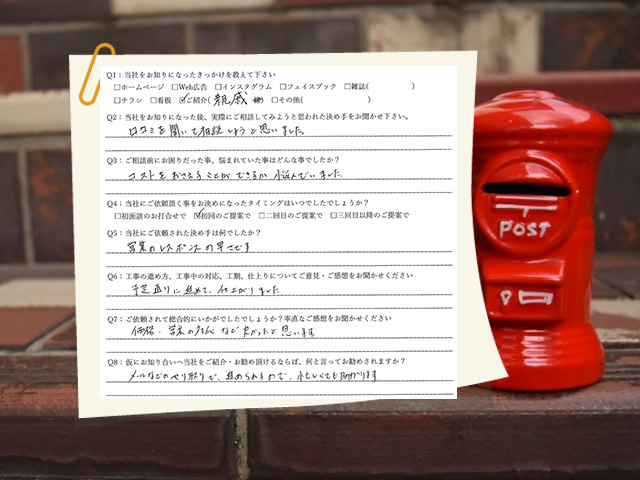 Q1：当社をお知りになったきっかけを教えて下さい
□ホームページ □Web広告 □インスタグラム □フェイスブック □雑誌( )
□チラシ □看板 ☑ご紹介(親戚 様) □その他( )
Q2：当社をお知りになった後、実際にご相談してみようと思われた決め手をお聞かせ下さい。
口コミを聞いて相談しようと思いました。
Q3：ご相談前にお困りだった事、悩まれていた事はどんな事でしたか？
コストをおさえることができるか悩んでいました。
Q4：当社にご依頼頂く事をお決めになったタイミングはいつでしたでしょうか？
□初面談のお打合せで ☑初回のご提案で □二回目のご提案で □三回目以降のご提案で
Q5：当社にご依頼された決め手は何でしたか？
営業のレスポンスの早さです
Q6：工事の進め方、工事中の対応、工期、仕上りについてご意見・ご感想をお聞かせください
予定通りに進めて、仕上がりました
Q7：ご依頼されて総合的にいかがでしたでしょうか？率直なご感想をお聞かせください
価格・営業の対応など良かったと思います
Q8：仮にお知り合いへ当社をご紹介・お勧め頂けるならば、何と言ってお勧めされますか？
メールなどのやり取りで、進められるので、忙しくても助かります
POST